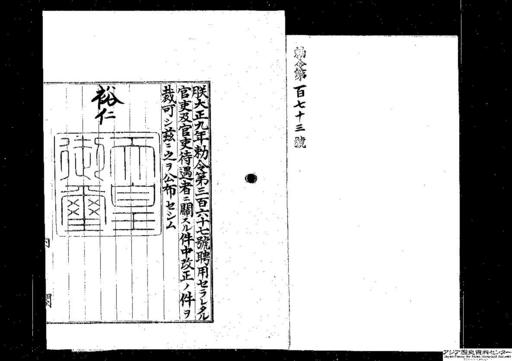 勅令第百七十三號
朕大正九年勅令第三百六十七號聘用セラレタル
官吏及官吏待遇者ニ關スル件中改正ノ件ヲ
裁可シ茲ニ之ヲ公布セシム
裕仁
天皇
御璽
内
閣
アジア歴史資料センター